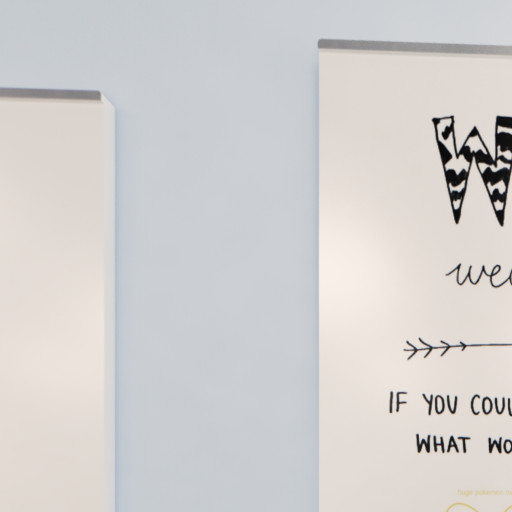 W
we
IF YOU COU
WHAT WO